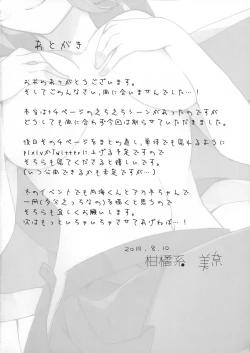 あとがき
お読みいただきありがとうございます。
そしてごめんなさい、間に合いませんでした…!
本当は+4ページのえちえちシーンがあったのですが
どうしても間に合わず今回は削らせていただきました。
後日そのページをまとめ直し、単体でも見れるように
pixivかTwitterに上げる予定ですので
そちらも見てくださると嬉しいです。
(いつ公開できるかも未定ですが…)
冬のイベントでも内海くんと
一冊(多分えっちなの)を描くと思うので
そちらも宜しくお願いします。
次はもっといちゃいちゃさせてあげねば…!
2019.8.10
柑橘系 美奈